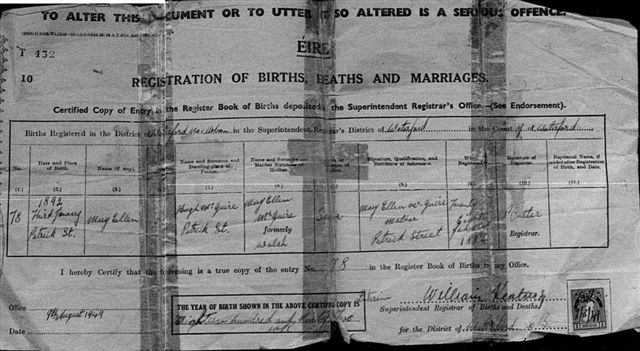 TO ALTER THIS DOCUMENT OR TO UTTER IT SO ALTERED IS A SERIOUS OFFENCE.
T 432
ÉIRE
10
REGISTRATION OF BIRTHS, DEATHS AND MARRIAGES.
Certified Copy of Entry in the Register Book of Births deposited in the Superintendent Registrar's Office. (See Endorsement).
Births Registered in the District of Waterford in the Superintendent Registrar's District of Waterford in the County of Waterford
No. Date and Place of Birth. Name (if any). Name and Surname and Dwelling-place of Father. Name and Surname and Maiden Surname of Mother. Signature, Qualification, and Residence of Informant. When Registered. Signature of Registrar. Baptismal Name, if added after Registration of Birth, and Date.
(1.) (2.) (3.) (5.) (6.) (8.) (9.) (10.) (11.)
78 1892 Third January Patrick St. Mary Ellen Hugh McGuire Patrick St. Mary Ellen McGuire formerly Walsh Mary Ellen McGuire mother Patrick Street Registrar.
I hereby Certify that the foregoing is a true copy of the entry No. 78 in the Register Book of Births in my Office.
William
Superintendent Registrar of Births and Deaths
Office
Date 9th August 1949
THE YEAR OF BIRTH SHOWN IN THE ABOVE CERTIFIED COPY IS
Eighteen hundred and ninety two
for the District of Waterford